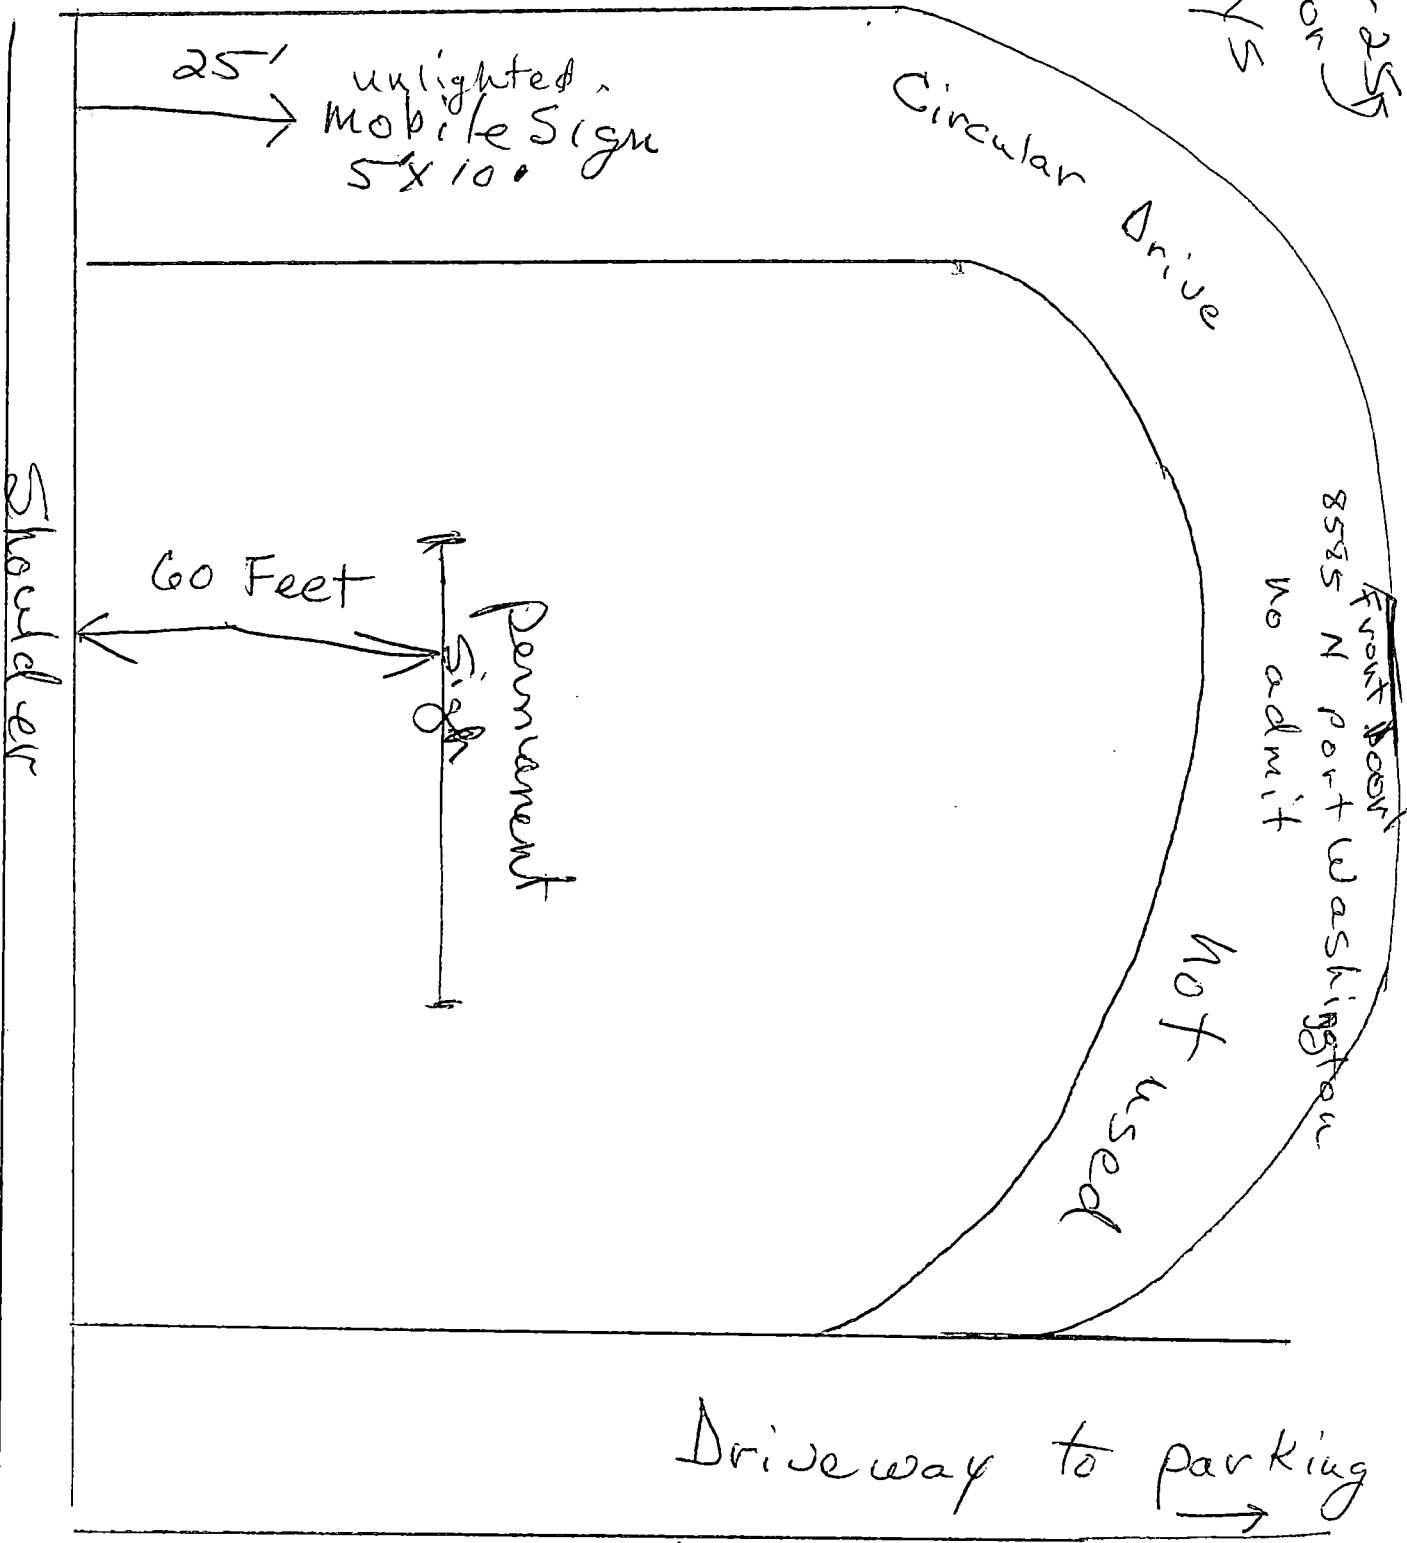 25'
unlighted.
Mobile Sign
5'X10.
Circular Drive
255
on
YS
Shoulder
60 Feet
Permanent
Sign
Front Door
8585 N port washington
no admit
not used
Driveway to parking